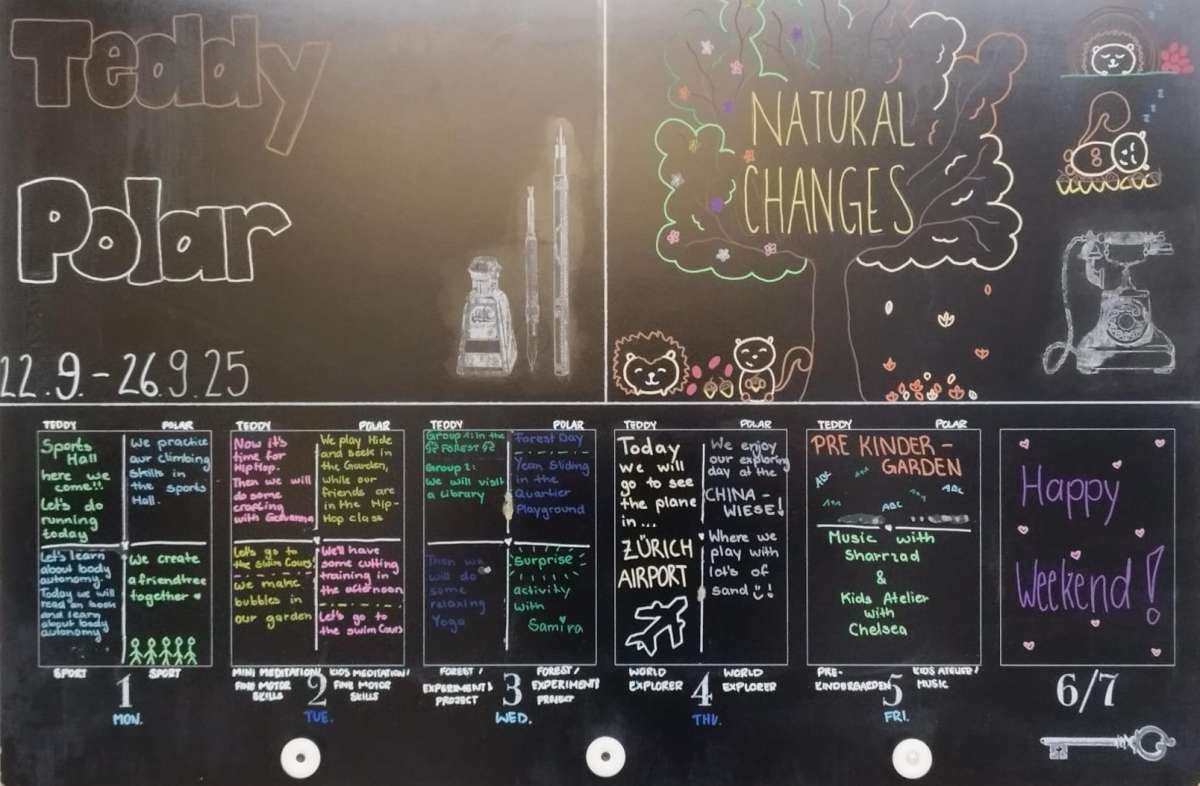 Teddy
Polar
22.9.-26.9.25
NATURAL
CHANGES
8
TEDDY
POLAR
Sports
Hall
here we
come!!
Let's do
running
today
We practice
our climbing
skills in
the sports
Hall.
Let's learn
about body
autonomy.
Today we will
read an book
and learn
about body
autonomy
We create
a friendtree
together
SPORT
SPORT
1
MON.
TEDDY
POLAR
Now it's
time for
HipHop.
Then we will
do some
crafting
with Geovanna
We play Hide
and seek in
the Garden,
while our
friends are
in the Hip-
Hop class
Let's go to
the swim Cours
we make
bubbles in
our garden
We'll have
some cutting
training in
the afternoon
Let's go to
the swim Cours
MINI MEDITATION/
FINE MOTOR
SKILLS
KIDS MEDITATION/
FINE MOTOR
SKILLS
2
TUE.
TEDDY
POLAR
Group 1: In the
Forest
Group 2:
we will visit
a Library
Forest Day
Year Sliding
in the
Quartier
Playground
Then we
will do
some
relaxing
Yoga
Surprise
activity
with
Samira
FOREST/
EXPERIMENT &
PROJECT
FOREST/
EXPERIMENT &
PROJECT
3
WED.
TEDDY
POLAR
Today
we will
go to see
the plane
in ...
ZÜRICH
AIRPORT
We enjoy
our exploring
day at the
CHINA-
WIESE!
Where we
play with
lot's of
sand !
WORLD
EXPLORER
WORLD
EXPLORER
4
THU.
TEDDY
POLAR
PRE KINDER-
GARDEN
ABC
ABC
ABC
Music with
Sharrzad
&
Kids Atelier
with
Chelsea
PRE-
KINDERGARDEN
KIDS ATELIER/
MUSIC
5
FRI.
Happy
Weekend!
6/7